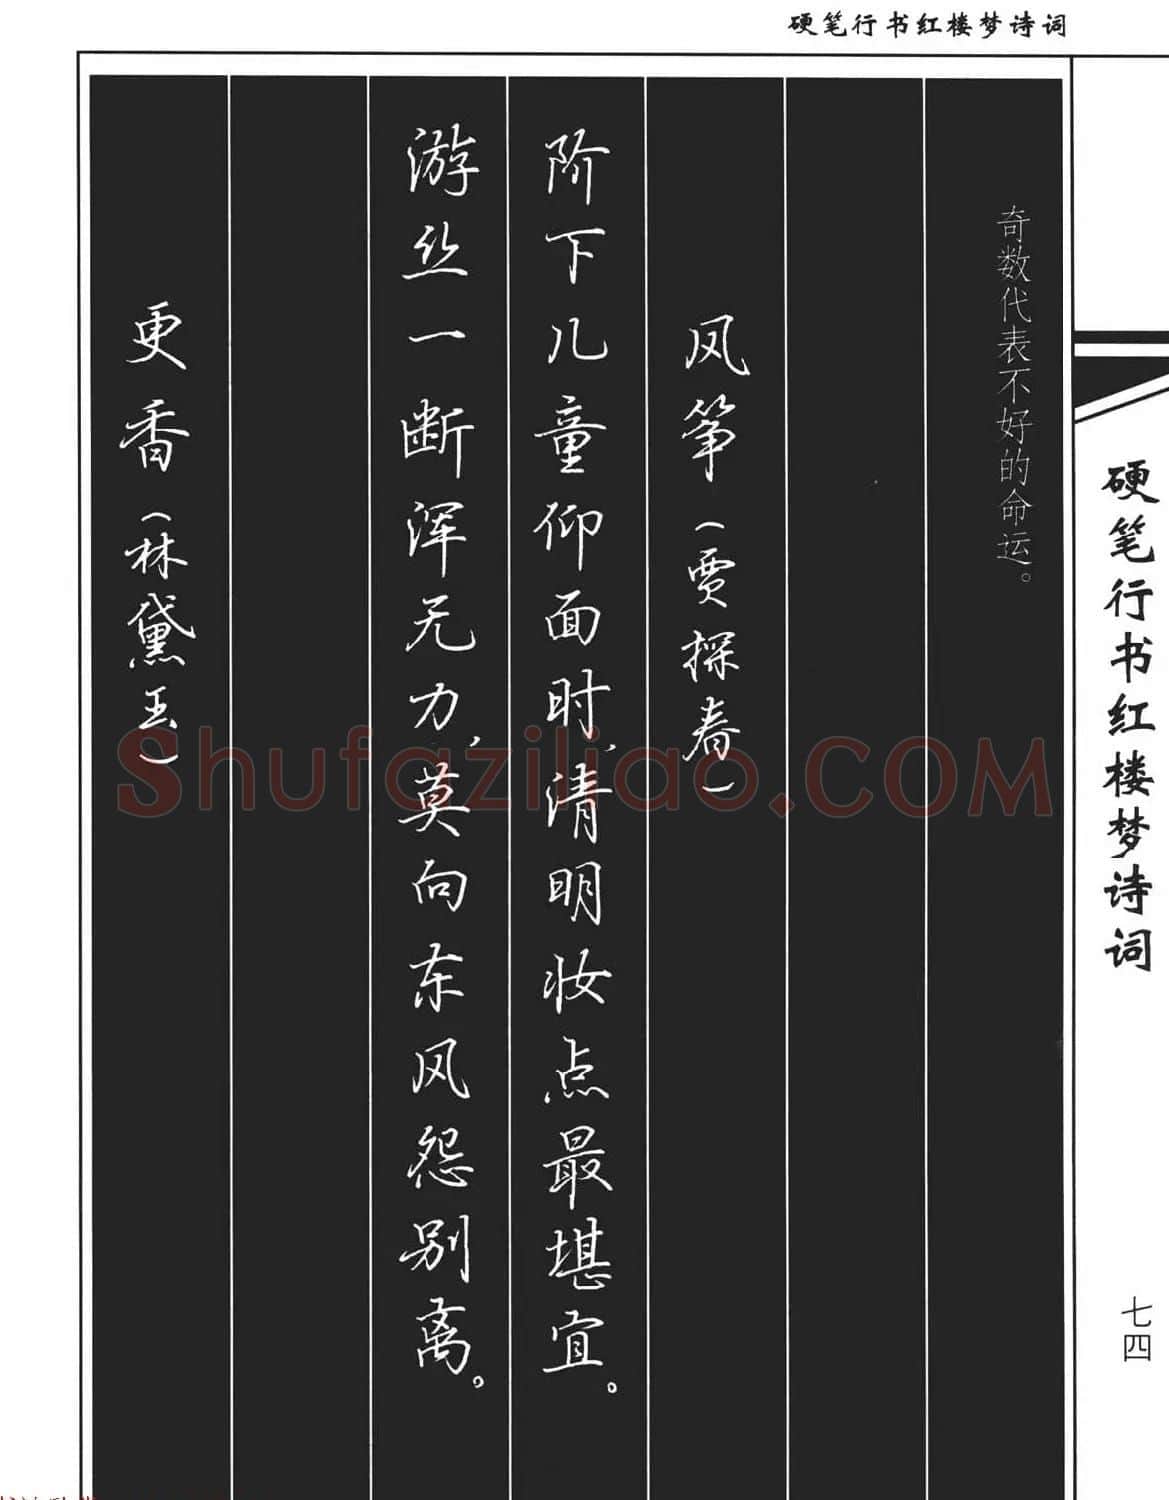 硬笔行书红楼梦诗词
奇数代表不好的命运。
凤筝（贾探春）
阶下儿童仰面时，清明妆点最堪宜。
游丝一断浑无力，莫向东风怨别离。
更香（林黛玉）
硬笔行书红楼梦诗词
七四
Shufaziliao.COM